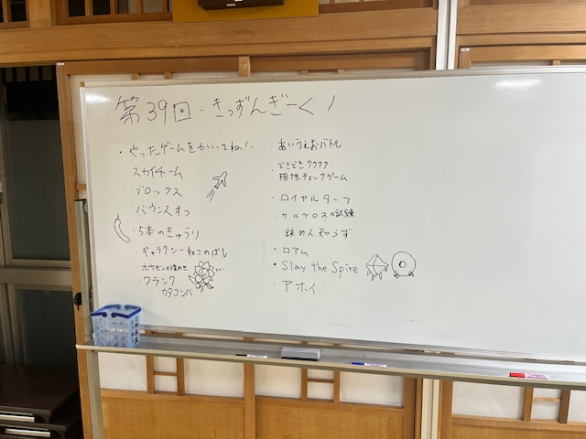 第39回・きっずんぎーく!
・やったゲームをかいてね!
スカイチーム
・ブロックス
・バウンスオフ
・5本のきゅうり
・ギャラクシーねこのばし
・クランク
カタコンバ
・あいうえおバトル
・どきどきワクワク
相性チェックゲーム
・ロイヤルターフ
・ケルベロスの試練
・読み人知らず
・ロアム
・Slay the Spire
・アホイ